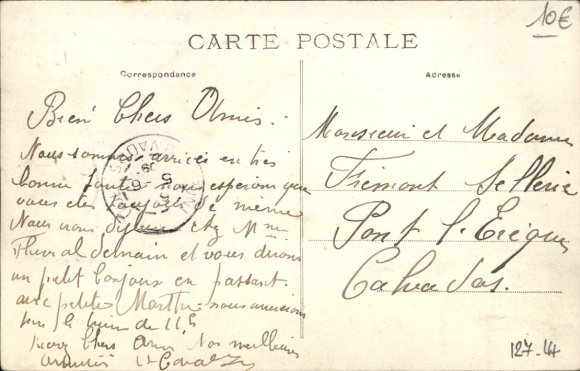 10€
CARTE POSTALE
Correspondance
Adresse
Bien Chers Amis.
Nous sommes arrivés en très
bonne santé nous espérons que
vous êtes toujours de même
Nous nous chez Mme
demain et vous dirons
un petit bonjour en passant
avec petite Marthe nous
pas le de 11h
Chers Amis Nos meilleures
amitiés
Monsieur et Madame
Frémont Sellerie
Pont l'Evêque
Calvados.
127-44